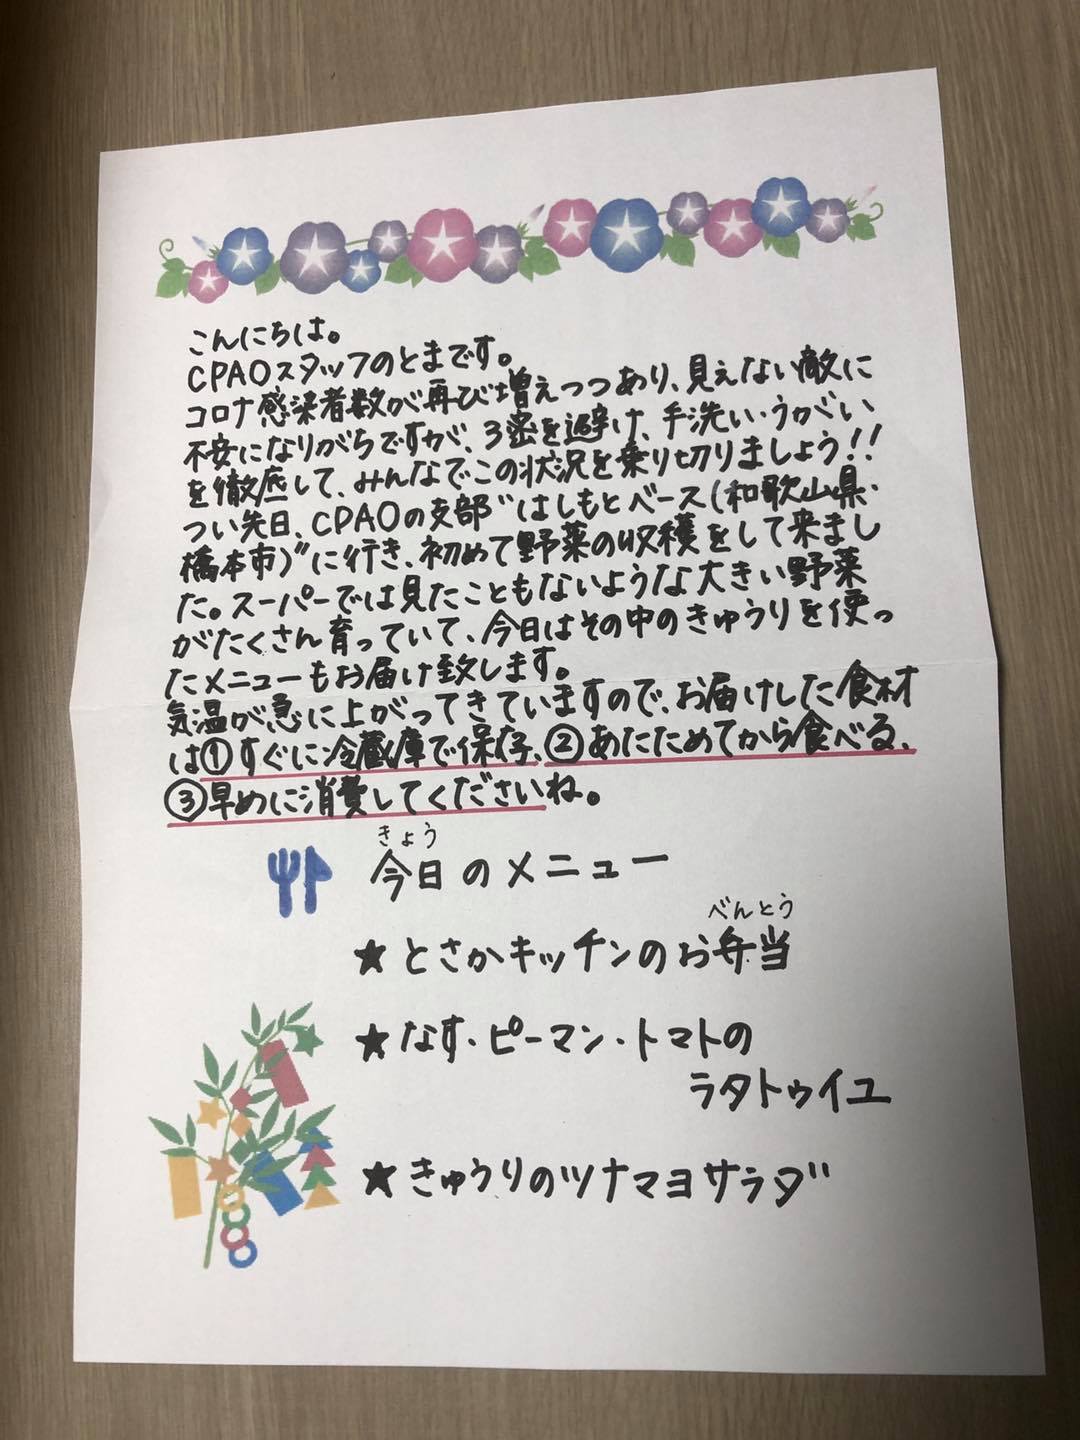 こんにちは。
CPAOスタッフのとまです。
コロナ感染者数が再び増えつつあり、見えない敵に
不安になりがちですが、3密を避け、手洗い・うがい
を徹底して、みんなでこの状況を乗り切りましょう!!
つい先日、CPAOの支部"はしもとベース(和歌山県・
橋本市)"に行き、初めて野菜の収穫をして来まし
た。スーパーでは見たこともないような大きい野菜
がたくさん育っていて、今日はその中のきゅうりを使っ
たメニューもお届け致します。
気温が急に上がってきていますので、お届けした食材
は①すぐに冷蔵庫で保存、②あたためてから食べる、
③早めに消費してくださいね。
きょう
今日のメニュー
べんとう
★とさかキッチンのお弁当
★なす・ピーマン・トマトの
ラタトゥイユ
★きゅうりのツナマヨサラダ